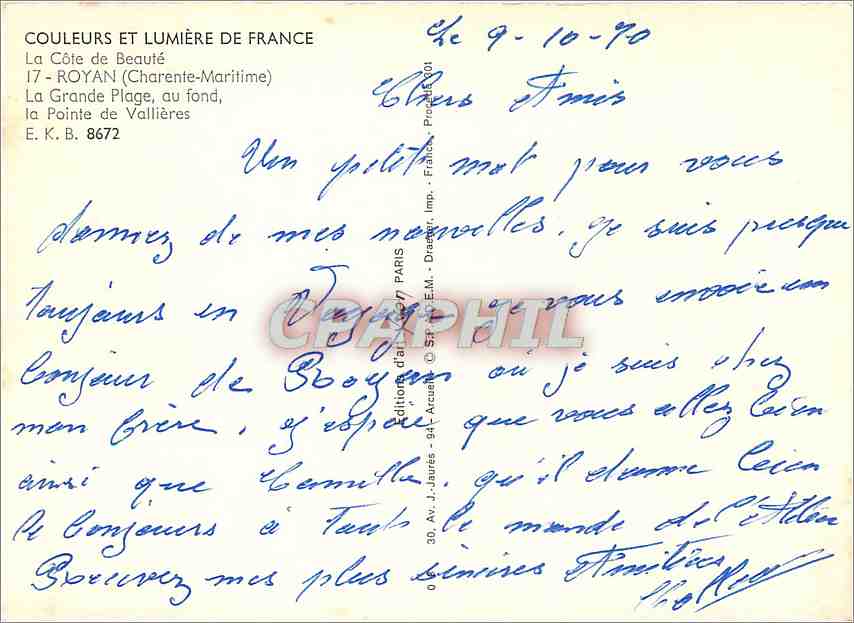 COULEURS ET LUMIÈRE DE FRANCE
La Côte de Beauté
17 - ROYAN (Charente-Maritime)
La Grande Plage, au fond,
la Pointe de Vallières
E. K. B. 8672
Le 9-10-70
Chers Amis
Un petit mot pour vous
donnez de mes nouvelles, je suis presque
toujours en Voyage je vous envoie un
bonjour de Royan où je suis chez
mon frère, j'espère que vous allez bien
ainsi que Camille, qu'il donne bien
le bonjours à Tout le monde de
Recevez mes plus sincères Amitiés
Editions d'art Yvon PARIS
30, Av. J.-Jaurès - 94 - Arcueil © S.P.A.D.E.M. - Draeger, Imp. - France - Procédé 301
CPAPHIL